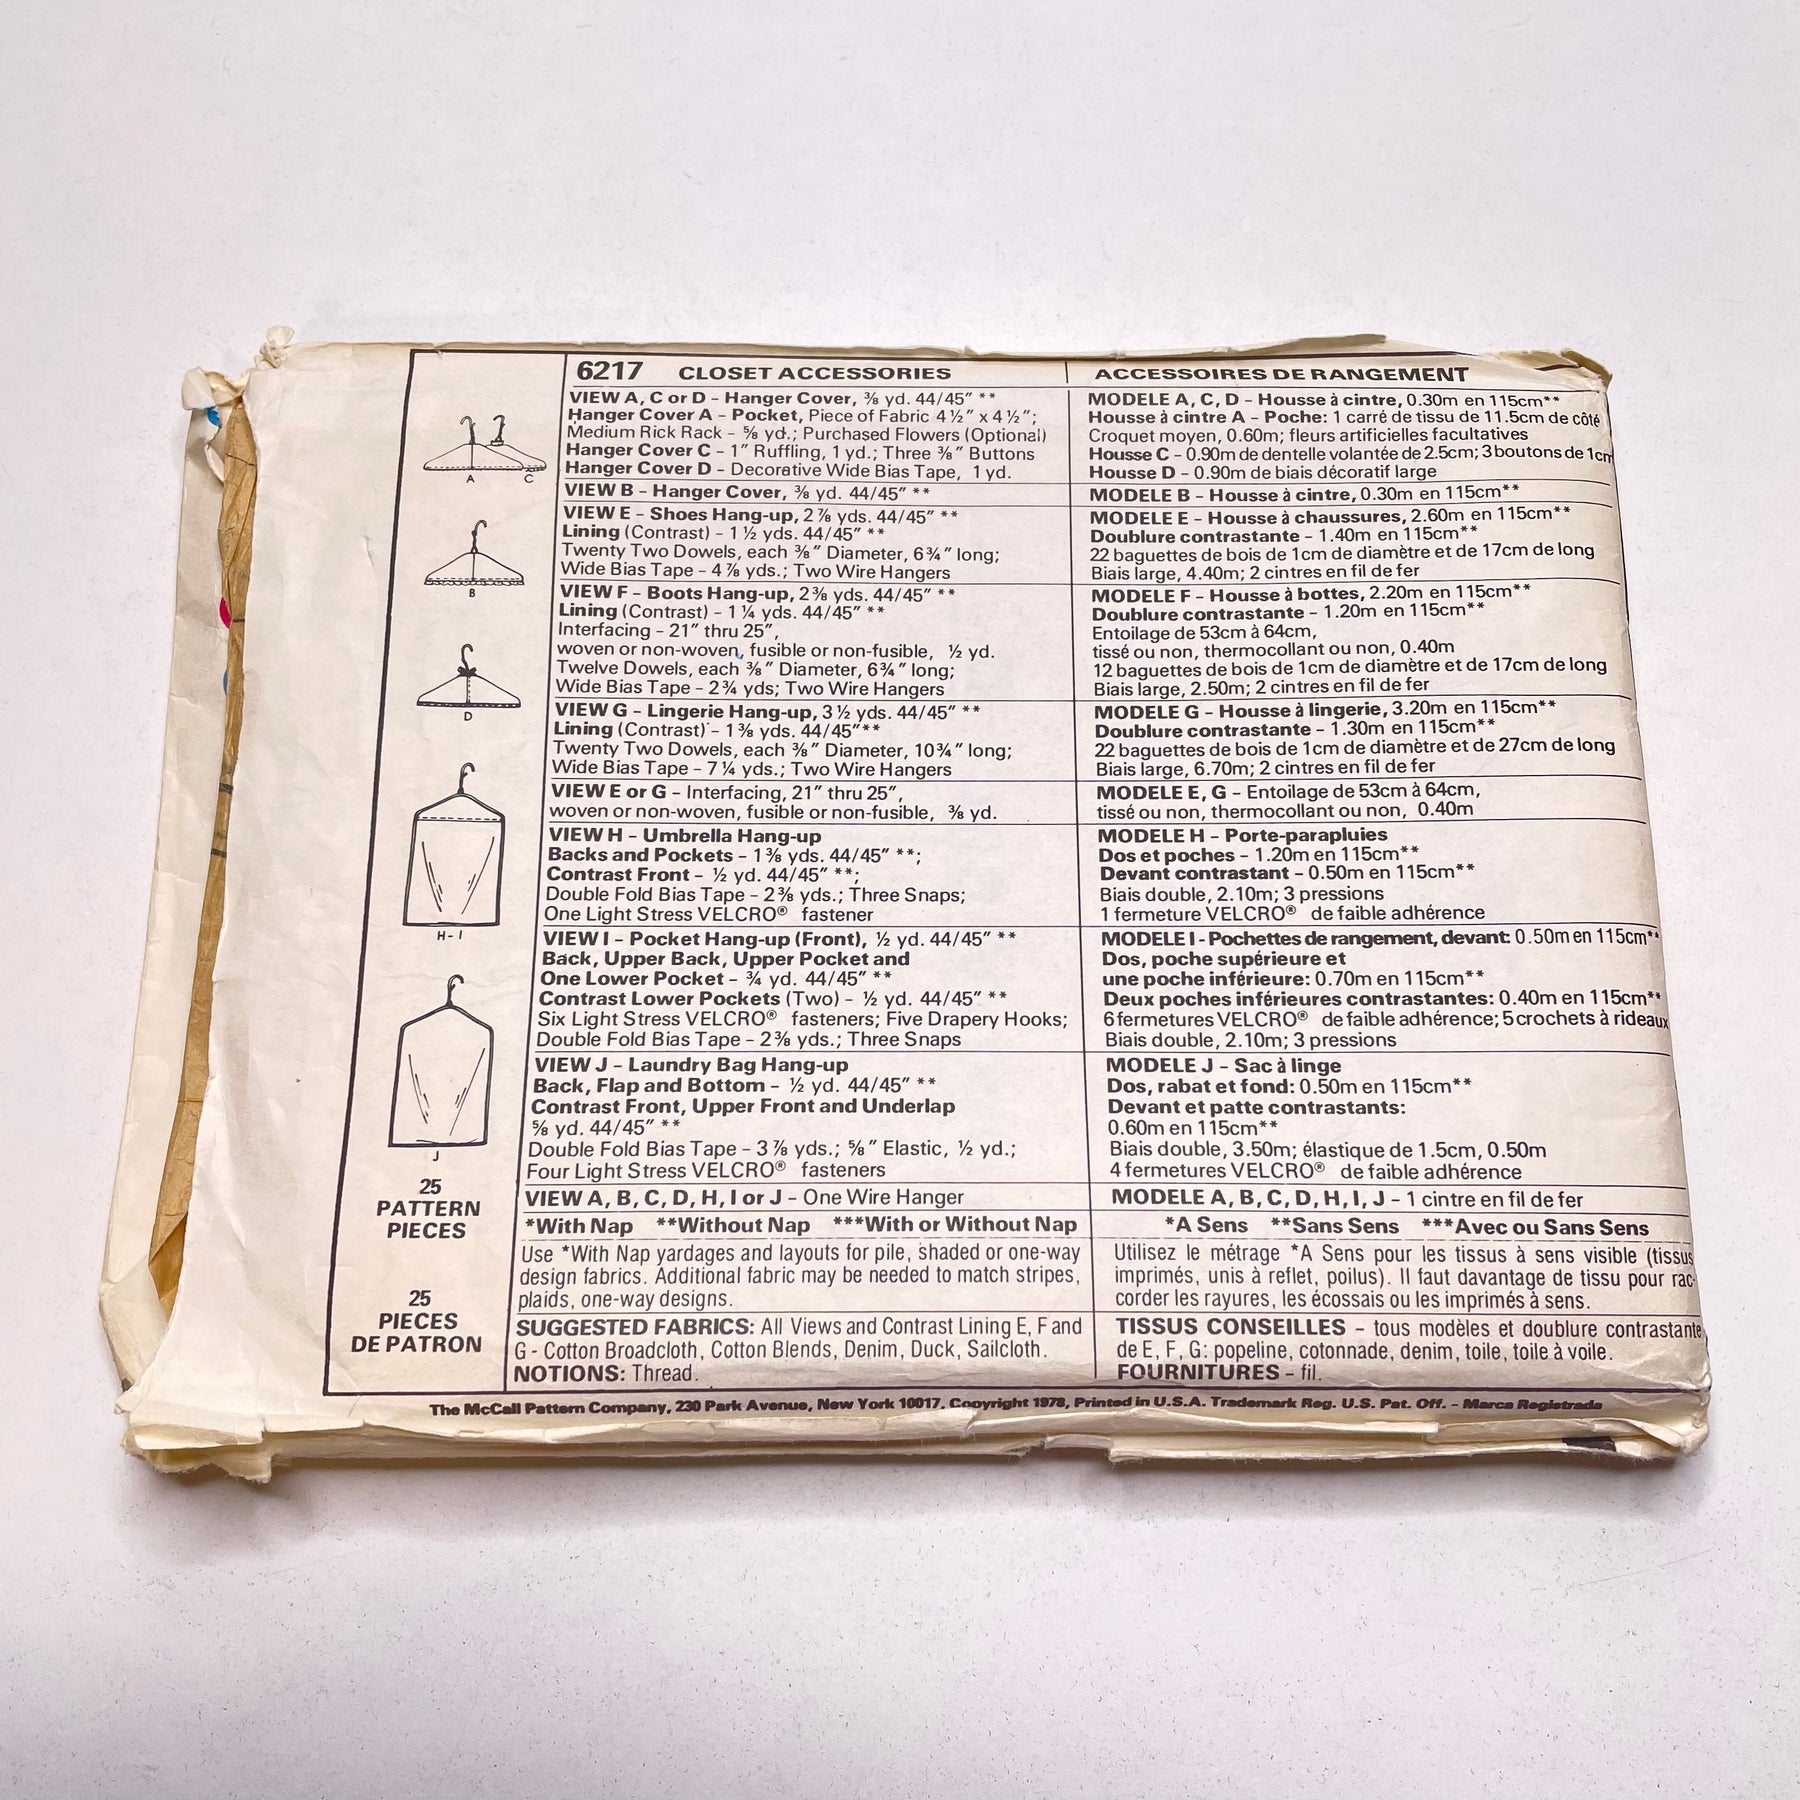 6217 CLOSET ACCESSORIES
VIEW A, C or D - Hanger Cover, ⅜ yd. 44/45" **
Hanger Cover A - Pocket, Piece of Fabric 4½" x 4½";
Medium Rick Rack - ⅝ yd.; Purchased Flowers (Optional)
Hanger Cover C - 1" Ruffling, 1 yd.; Three ⅜" Buttons
Hanger Cover D - Decorative Wide Bias Tape, 1 yd.
VIEW B - Hanger Cover, ⅜ yd. 44/45" **
VIEW E - Shoes Hang-up, 2⅞ yds. 44/45" **
Lining (Contrast) - 1½ yds. 44/45" **
Twenty Two Dowels, each ⅜" Diameter, 6¾" long;
Wide Bias Tape - 4⅞ yds.; Two Wire Hangers
VIEW F - Boots Hang-up, 2⅜ yds. 44/45" **
Lining (Contrast) - 1¼ yds. 44/45" **
Interfacing - 21" thru 25",
woven or non-woven, fusible or non-fusible, ½ yd.
Twelve Dowels, each ⅜" Diameter, 6¾" long;
Wide Bias Tape - 2¾ yds; Two Wire Hangers
VIEW G - Lingerie Hang-up, 3½ yds. 44/45" **
Lining (Contrast) - 1⅜ yds. 44/45"**
Twenty Two Dowels, each ⅜" Diameter, 10¾" long;
Wide Bias Tape - 7¼ yds.; Two Wire Hangers
VIEW E or G - Interfacing, 21" thru 25",
woven or non-woven, fusible or non-fusible, ⅜ yd.
VIEW H - Umbrella Hang-up
Backs and Pockets - 1⅜ yds. 44/45" **;
Contrast Front - ½ yd. 44/45" **;
Double Fold Bias Tape - 2⅜ yds.; Three Snaps;
One Light Stress VELCRO® fastener
VIEW I - Pocket Hang-up (Front), ½ yd. 44/45" **
Back, Upper Back, Upper Pocket and
One Lower Pocket - ¾ yd. 44/45" **
Contrast Lower Pockets (Two) - ½ yd. 44/45" **
Six Light Stress VELCRO® fasteners; Five Drapery Hooks;
Double Fold Bias Tape - 2⅜ yds.; Three Snaps
VIEW J - Laundry Bag Hang-up
Back, Flap and Bottom - ½ yd. 44/45" **
Contrast Front, Upper Front and Underlap
⅝ yd. 44/45" **
Double Fold Bias Tape - 3⅞ yds.; ⅝" Elastic, ½ yd.;
Four Light Stress VELCRO® fasteners
VIEW A, B, C, D, H, I or J - One Wire Hanger
*With Nap **Without Nap ***With or Without Nap
Use *With Nap yardages and layouts for pile, shaded or one-way
design fabrics. Additional fabric may be needed to match stripes,
plaids, one-way designs.
SUGGESTED FABRICS: All Views and Contrast Lining E, F and
G - Cotton Broadcloth, Cotton Blends, Denim, Duck, Sailcloth.
NOTIONS: Thread.
ACCESSOIRES DE RANGEMENT
MODELE A, C, D - Housse à cintre, 0.30m en 115cm**
Housse à cintre A - Poche: 1 carré de tissu de 11.5cm de côté
Croquet moyen, 0.60m; fleurs artificielles facultatives
Housse C - 0.90m de dentelle volantée de 2.5cm; 3 boutons de 1cm
Housse D - 0.90m de biais décoratif large
MODELE B - Housse à cintre, 0.30m en 115cm**
MODELE E - Housse à chaussures, 2.60m en 115cm**
Doublure contrastante - 1.40m en 115cm**
22 baguettes de bois de 1cm de diamètre et de 17cm de long
Biais large, 4.40m; 2 cintres en fil de fer
MODELE F - Housse à bottes, 2.20m en 115cm**
Doublure contrastante - 1.20m en 115cm**
Entoilage de 53cm à 64cm,
tissé ou non, thermocollant ou non, 0.40m
12 baguettes de bois de 1cm de diamètre et de 17cm de long
Biais large, 2.50m; 2 cintres en fil de fer
MODELE G - Housse à lingerie, 3.20m en 115cm**
Doublure contrastante - 1.30m en 115cm**
22 baguettes de bois de 1cm de diamètre et de 27cm de long
Biais large, 6.70m; 2 cintres en fil de fer
MODELE E, G - Entoilage de 53cm à 64cm,
tissé ou non, thermocollant ou non, 0.40m
MODELE H - Porte-parapluies
Dos et poches - 1.20m en 115cm**
Devant contrastant - 0.50m en 115cm**
Biais double, 2.10m; 3 pressions
1 fermeture VELCRO® de faible adhérence
MODELE I - Pochettes de rangement, devant: 0.50m en 115cm**
Dos, poche supérieure et
une poche inférieure: 0.70m en 115cm**
Deux poches inférieures contrastantes: 0.40m en 115cm**
6 fermetures VELCRO® de faible adhérence; 5 crochets à rideaux
Biais double, 2.10m; 3 pressions
MODELE J - Sac à linge
Dos, rabat et fond: 0.50m en 115cm**
Devant et patte contrastants:
0.60m en 115cm**
Biais double, 3.50m; élastique de 1.5cm, 0.50m
4 fermetures VELCRO® de faible adhérence
MODELE A, B, C, D, H, I, J - 1 cintre en fil de fer
*A Sens **Sans Sens ***Avec ou Sans Sens
Utilisez le métrage *A Sens pour les tissus à sens visible (tissus
imprimés, unis à reflet, poilus). Il faut davantage de tissu pour rac-
corder les rayures, les écossais ou les imprimés à sens.
TISSUS CONSEILLES - tous modèles et doublure contrastante
de E, F, G: popeline, cotonnade, denim, toile, toile à voile.
FOURNITURES - fil.
A C
B
D
H-I
J
25
PATTERN
PIECES
25
PIECES
DE PATRON
The McCall Pattern Company, 230 Park Avenue, New York 10017, Copyright 1978, Printed in U.S.A. Trademark Reg. U.S. Pat. Off. - Marca Registrada